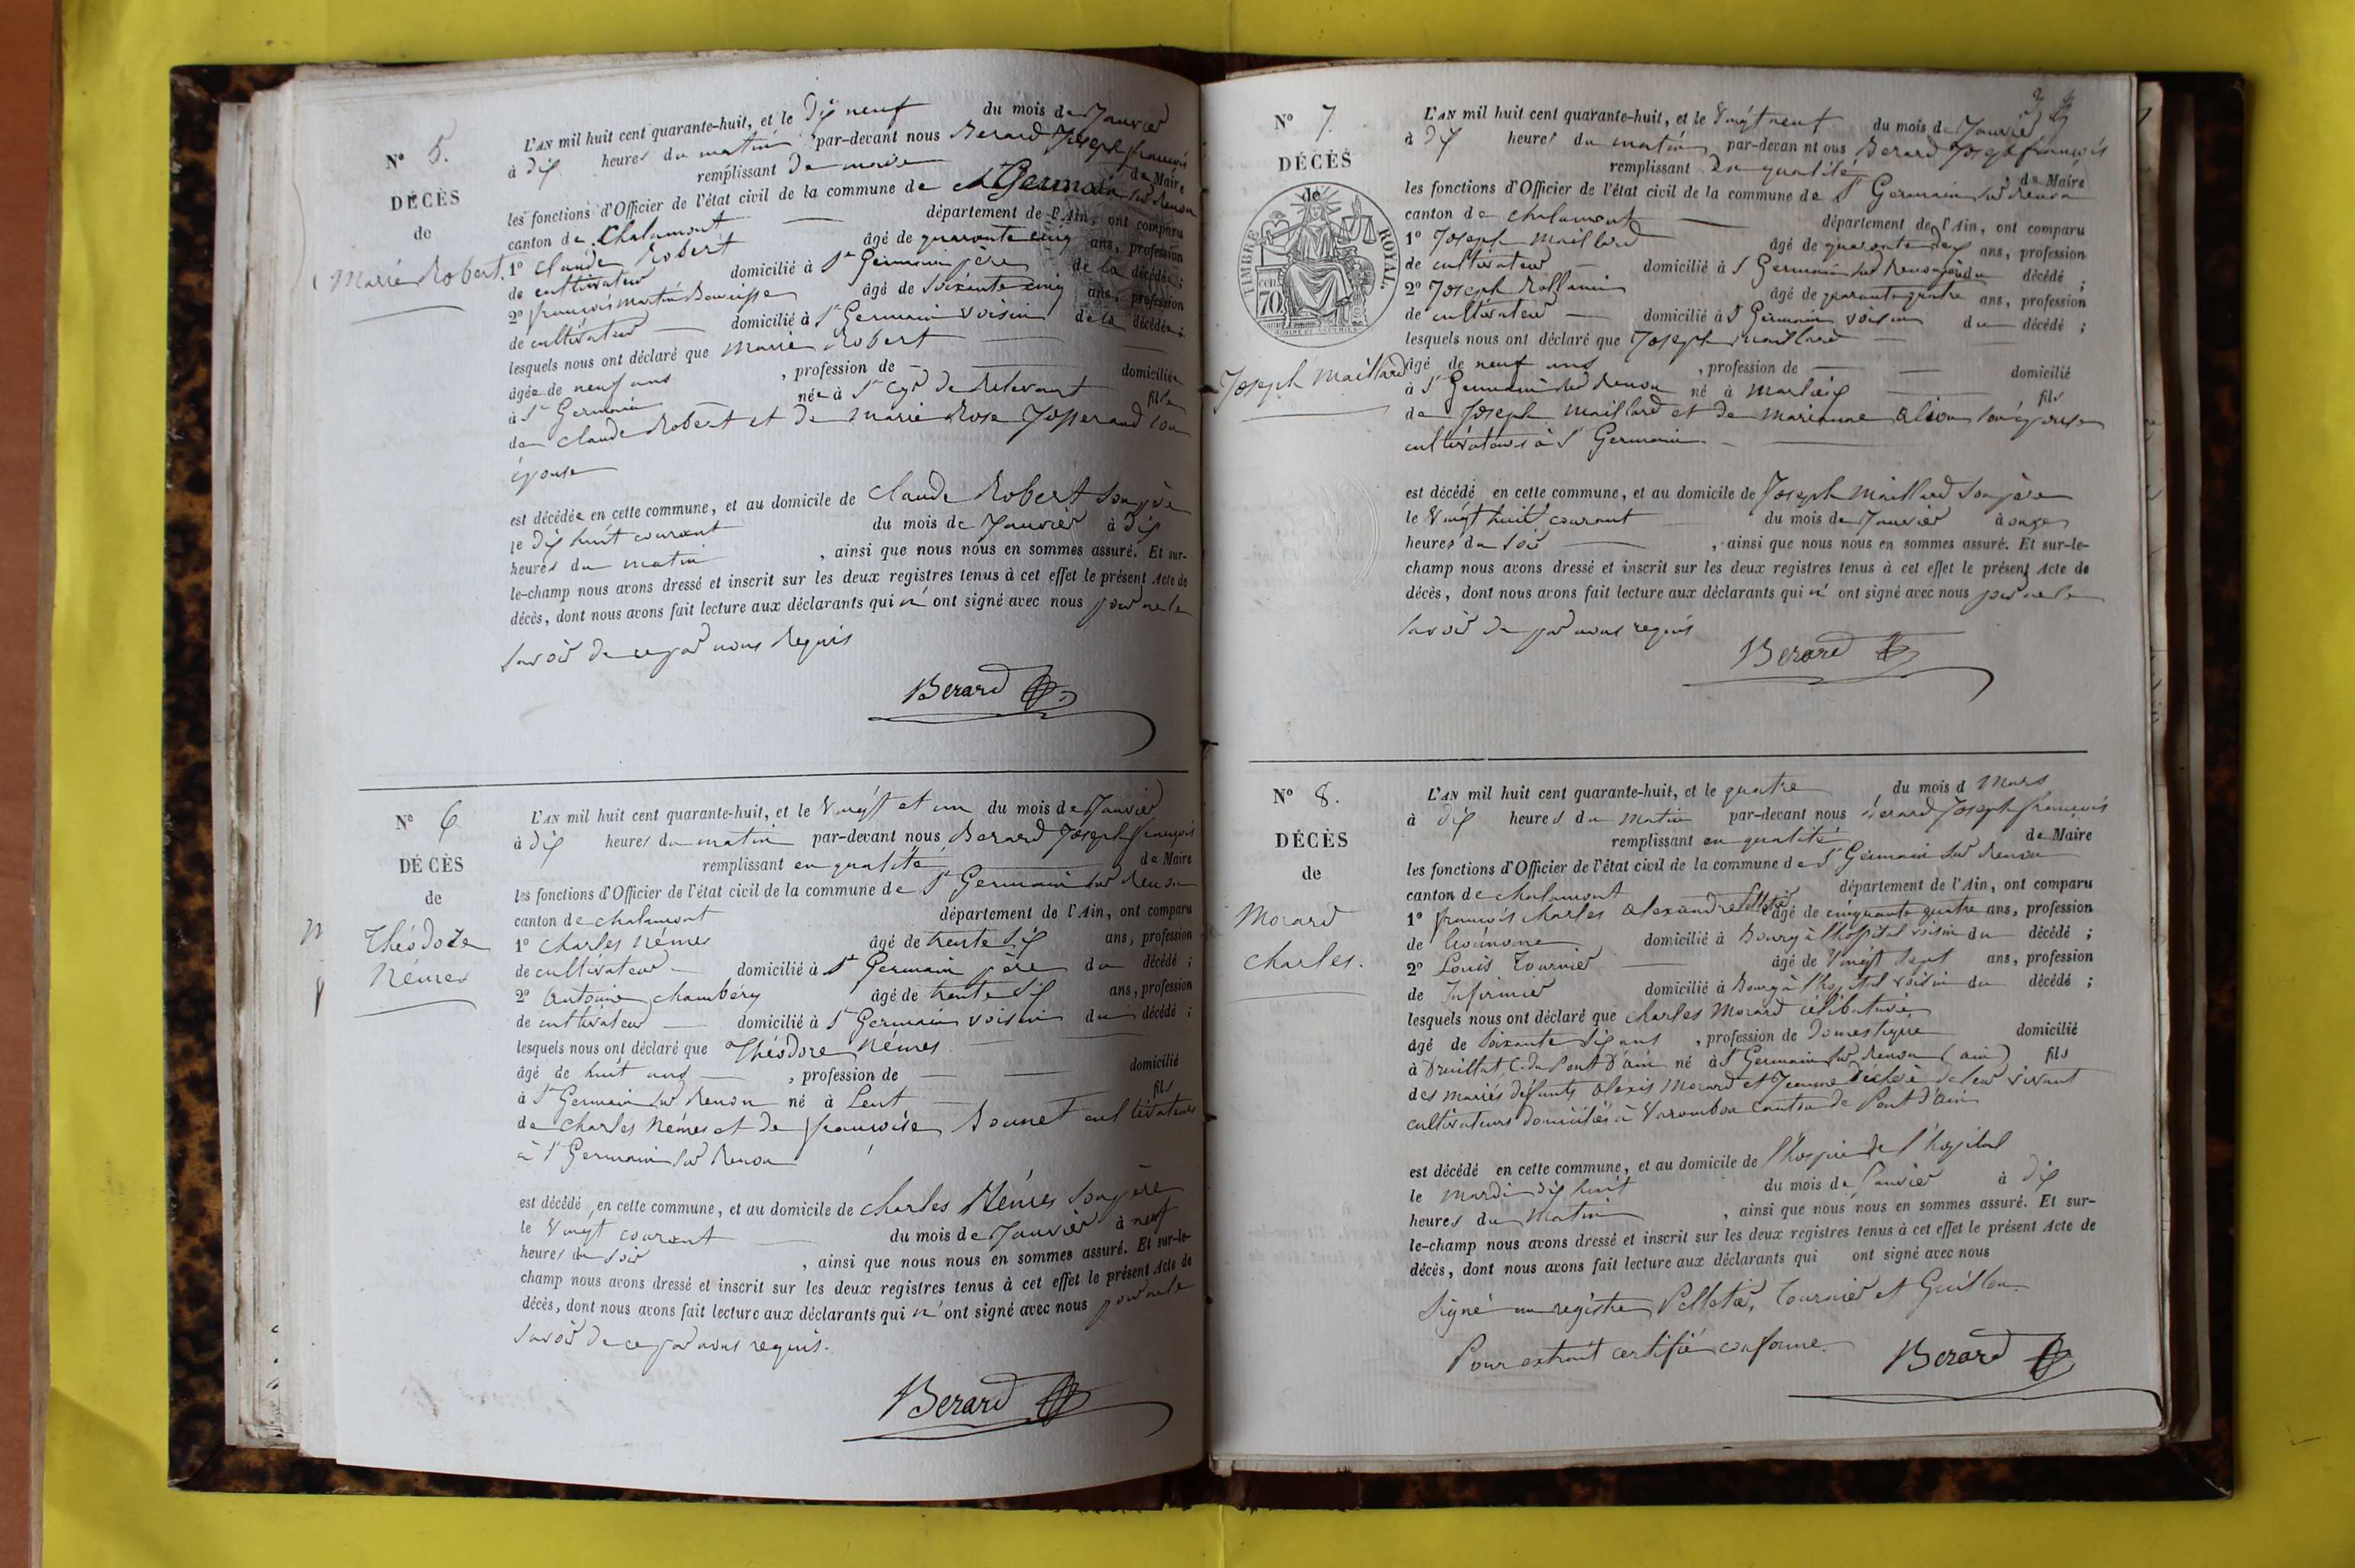 N° 5.
DÉCÈS
de
Marie Robert.
L'AN mil huit cent quarante-huit, et le Dix neuf du mois de Janvier
à dix heures du matin par-devant nous Berard Joseph françois
remplissant de maire de Maire
les fonctions d'Officier de l'état civil de la commune de St Germain sur Renon
canton de Chalamont département de l'Ain, ont comparu
1° Claude Robert âgé de quarante cinq ans, profession
de cultivateur domicilié à St Germain père de la décédée ;
2° françois martin âgé de Soixante cinq ans, profession
de cultivateur domicilié à St Germain voisin de la décédée ;
lesquels nous ont déclaré que Marie Robert
âgée de neuf ans , profession de domiciliée
à St Germain née à St Cyr de Relevant fille
de Claude Robert et de marie Rose Josserand son
épouse
est décédée en cette commune, et au domicile de Claude Robert Son père
le dix huit courant du mois de Janvier à dix
heures du matin , ainsi que nous nous en sommes assuré. Et sur-
le-champ nous avons dressé et inscrit sur les deux registres tenus à cet effet le présent Acte de
décès, dont nous avons fait lecture aux déclarants qui n' ont signé avec nous pour ne le
savoir de ce par nous Requis
Berard
N° 6
DÉCÈS
de
Théodore
Némes
L'AN mil huit cent quarante-huit, et le Vingt et un du mois de Janvier
à dix heures du matin par-devant nous Berard Joseph françois
remplissant en qualité de Maire
les fonctions d'Officier de l'état civil de la commune de St Germain sur Renon
canton de Chalamont département de l'Ain, ont comparu
1° Charles Némes âgé de trente six ans, profession
de cultivateur domicilié à St Germain père du décédé ;
2° Antoine Chambéry âgé de trente six ans, profession
de cultivateur domicilié à St Germain voisin du décédé ;
lesquels nous ont déclaré que Théodore Némes
âgé de huit ans , profession de domicilié
à St Germain sur Renon né à Lent fils
de Charles Némes et de françoise Bonnet cultivateurs
à St Germain sur Renon
est décédé en cette commune, et au domicile de Charles Némes Son père
le Vingt courant du mois de Janvier à neuf
heures du soir , ainsi que nous nous en sommes assuré. Et sur-le-
champ nous avons dressé et inscrit sur les deux registres tenus à cet effet le présent Acte de
décès, dont nous avons fait lecture aux déclarants qui n' ont signé avec nous pour ne le
savoir de ce par nous requis.
Berard
N° 7.
DÉCÈS
de
TIMBRE ROYAL.
70
Joseph Maillard
L'AN mil huit cent quarante-huit, et le Vingt neuf du mois de Janvier
à dix heures du matin par-devan nt ous Berard Joseph françois
remplissant en qualité de Maire
les fonctions d'Officier de l'état civil de la commune de St Germain sur Renon
canton de Chalamont département de l'Ain, ont comparu
1° Joseph Maillard âgé de quarante ans, profession
de cultivateur domicilié à St Germain sur Renon père du décédé ;
2° Joseph Rollamin âgé de quarante quatre ans, profession
de cultivateur domicilié à St Germain voisin du décédé ;
lesquels nous ont déclaré que Joseph Maillard
âgé de neuf ans , profession de domicilié
à St Germain sur Renon né à Marlieux fils
de Joseph Maillard et de Marianne son épouse
cultivateurs à St Germain
est décédé en cette commune, et au domicile de Joseph Maillard Son père
le Vingt huit courant du mois de Janvier à onze
heures du soir , ainsi que nous nous en sommes assuré. Et sur-le-
champ nous avons dressé et inscrit sur les deux registres tenus à cet effet le présent Acte de
décès, dont nous avons fait lecture aux déclarants qui n' ont signé avec nous pour ne le
savoir de par nous requis
Berard
N° 8.
DÉCÈS
de
Morard
Charles.
L'AN mil huit cent quarante-huit, et le quatre du mois d Mars
à dix heures du matin par-devant nous Berard Joseph françois
remplissant en qualité de Maire
les fonctions d'Officier de l'état civil de la commune de St Germain sur Renon
canton de Chalamont département de l'Ain, ont comparu
1° françois Charles Alexandre Pelletier âgé de cinquante quatre ans, profession
de domicilié à Bourg à l'hopital voisin du décédé ;
2° Louis Tournier âgé de Vingt Sept ans, profession
de Infirmier domicilié à Bourg à l'hopital voisin du décédé ;
lesquels nous ont déclaré que Charles Morard célibataire
âgé de Soixante dix ans , profession de Domestique domicilié
à Druillat, C. du Pont D'ain né à St Germain sur Renon (ain) fils
des mariés défunts Alexis Morard et Jeanne de leur vivant
cultivateurs domiciliés à Varambon canton de Pont d'Ain
est décédé en cette commune, et au domicile de l'hospice de l'hopital
le mardi dix huit du mois de Janvier à dix
heures du matin , ainsi que nous nous en sommes assuré. Et sur-
le-champ nous avons dressé et inscrit sur les deux registres tenus à cet effet le présent Acte de
décès, dont nous avons fait lecture aux déclarants qui ont signé avec nous
Signé au registre Pelletier, Tournier et Guillon.
Pour extrait certifié conforme.
Berard